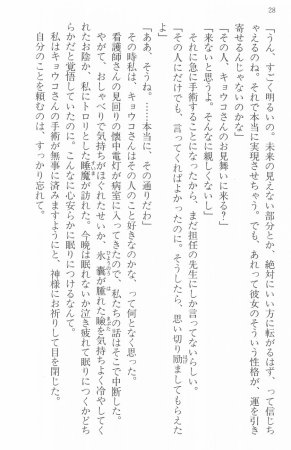 28
「うん、すごく明るいの。未来の見えない部分とか、絶対にいい方に転がるはず、って信じち
ゃえるのね。それで本当に実現させちゃう。でも、あれって彼女のそういう性格が、運を引き
寄せるんじゃないのかな」
「その人、キョウコさんのお見舞いに来る?」
「来ないと思うよ。そんなに親しくないし」
それに急に手術することになったから、まだ担任の先生にしか言ってないらしい。
「その人にだけでも、言ってくればよかったのに。そうしたら、思い切り励ましてもらえた
よ」
「ああ、そうね。……本当に、その通りだわ」
その時私は、キョウコさんはその人のこと好きなのかな、って何となく思った。
看護師さんの見回りの懐中電灯が病室に入ってきたので、私たちの話はそこで中断した。
やがて、おしゃべりで気持ちがほぐれたせいか、氷嚢が腫れた瞼を気持ちよく冷やしてく
れたお陰か、私にトロリとした睡魔が訪れた。今晩は眠れないか泣き疲れて眠りにつくかどち
らかだと覚悟していたのに。こんなに心安らかに眠りにつけるなんて。
私はキョウコさんの手術が無事に済みますようにと、神様にお祈りして目を閉じた。
自分のことを頼むのは、すっかり忘れて。